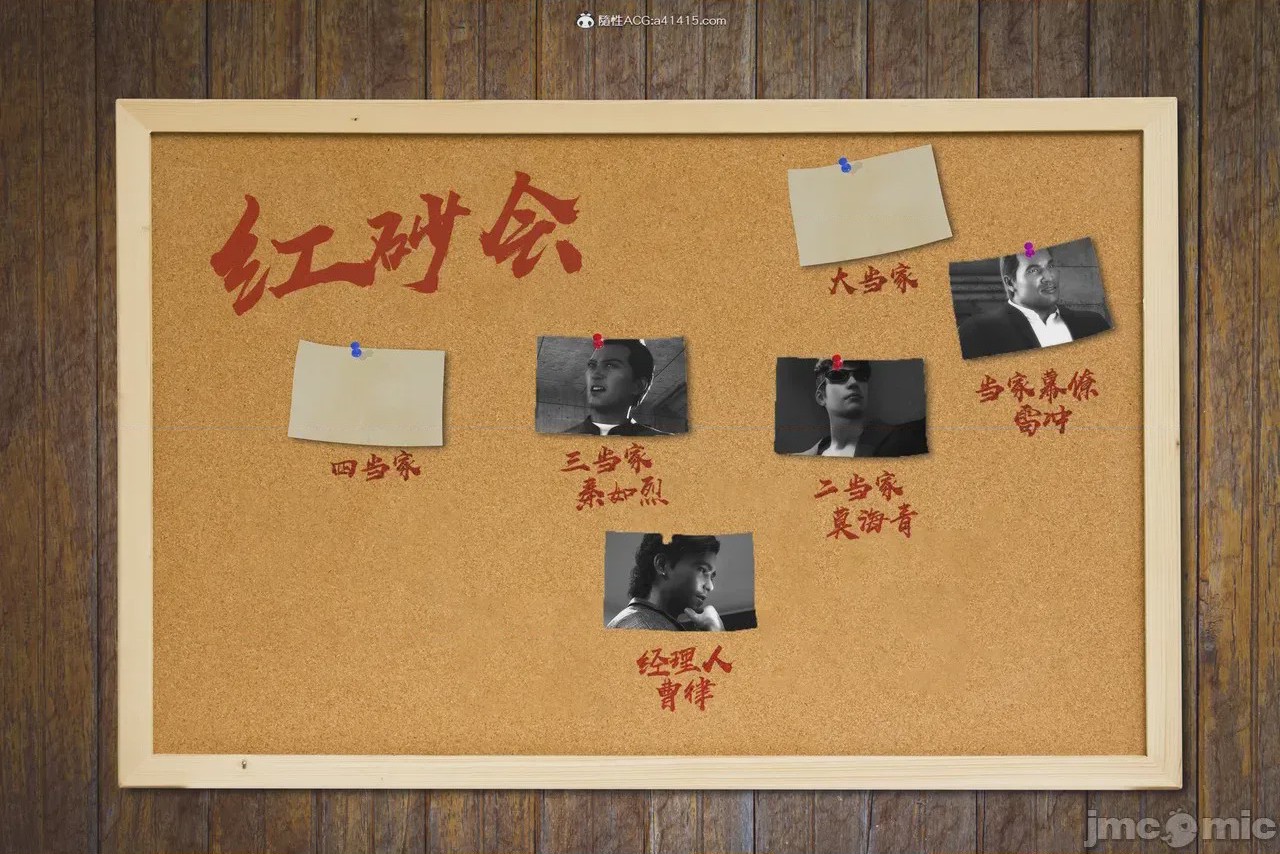 随性ACG:a41415.com
红砂会
大当家
当家幕僚
雷冲
四当家
三当家
秦如烈
二当家
莫海青
经理人
曹律
jmcomic